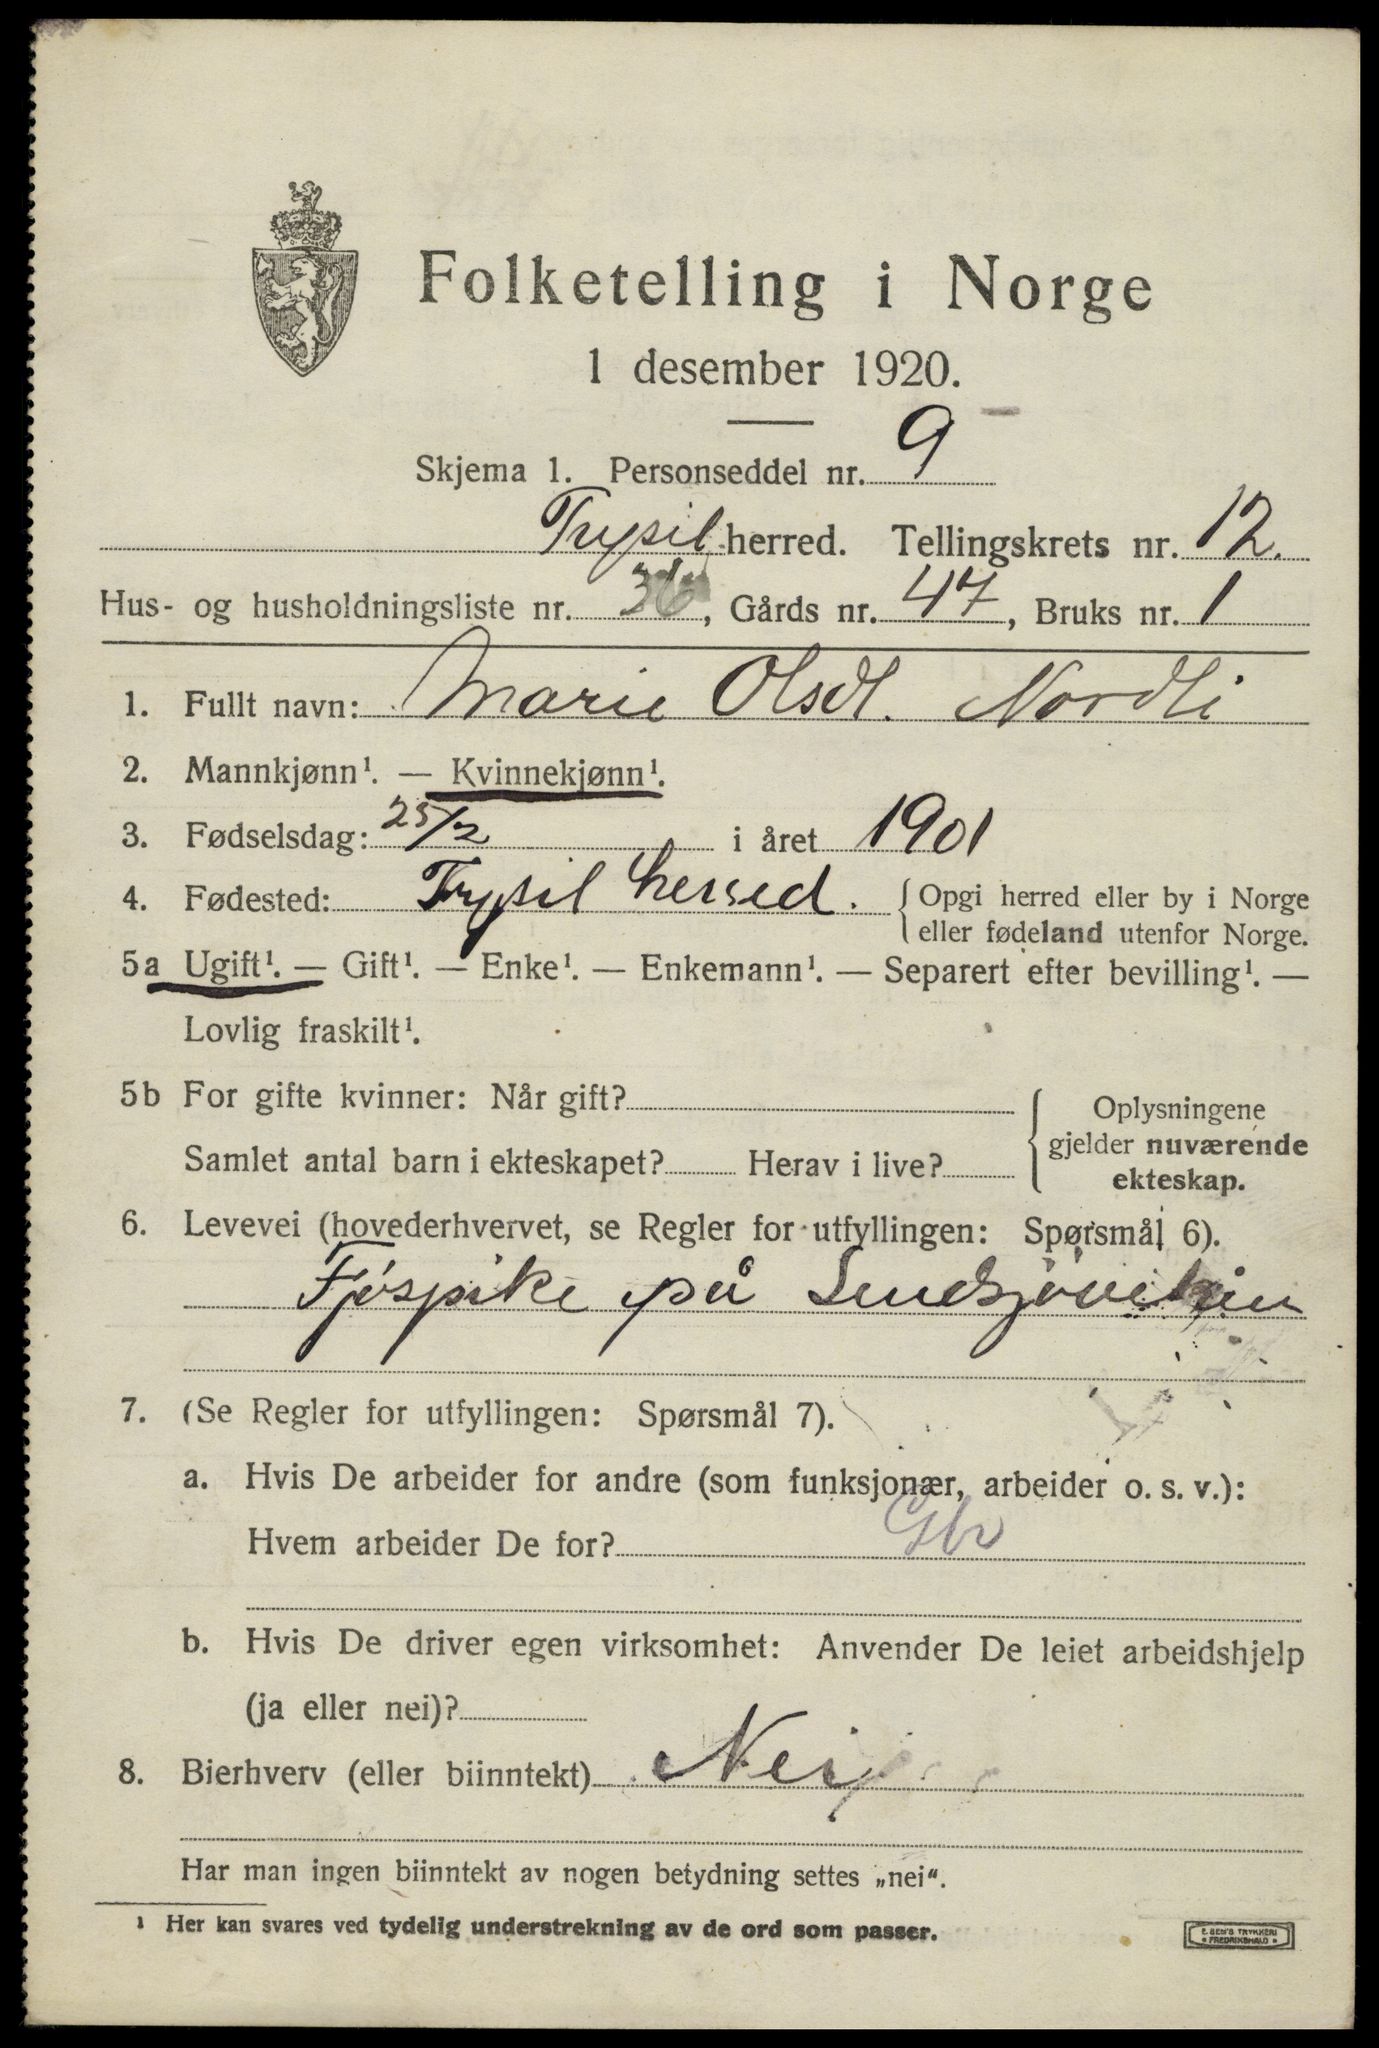 Folketelling i Norge
1 desember 1920.
Skjema 1. Personseddel nr. 9
Trysil herred. Tellingskrets nr. 12.
Hus- og husholdningsliste nr. 36, Gårds nr. 47, Bruks nr. 1
1. Fullt navn: Marie Olsdt. Nordli
2. Mannkjønn¹. — Kvinnekjønn¹.
3. Fødselsdag: 25/2 i året 1901
4. Fødested: Trysil herred. { Opgi herred eller by i Norge
eller fødeland utenfor Norge.
5a Ugift¹. — Gift¹. — Enke¹. — Enkemann¹. — Separert efter bevilling¹. —
Lovlig fraskilt¹.
5b For gifte kvinner: Når gift? { Oplysningene
gjelder nuværende
Samlet antal barn i ekteskapet? Herav i live?
ekteskap.
6. Levevei (hovederhvervet, se Regler for utfyllingen: Spørsmål 6).
Fjøspike på
7. (Se Regler for utfyllingen: Spørsmål 7).
a. Hvis De arbeider for andre (som funksjonær, arbeider o. s. v.):
Hvem arbeider De for? Gbr
b. Hvis De driver egen virksomhet: Anvender De leiet arbeidshjelp
(ja eller nei)?
8. Bierhverv (eller biinntekt) Nei
Har man ingen biinntekt av nogen betydning settes „nei“.
¹ Her kan svares ved tydelig understrekning av de ord som passer.
TRYKKERI
FREDRIKSHALD